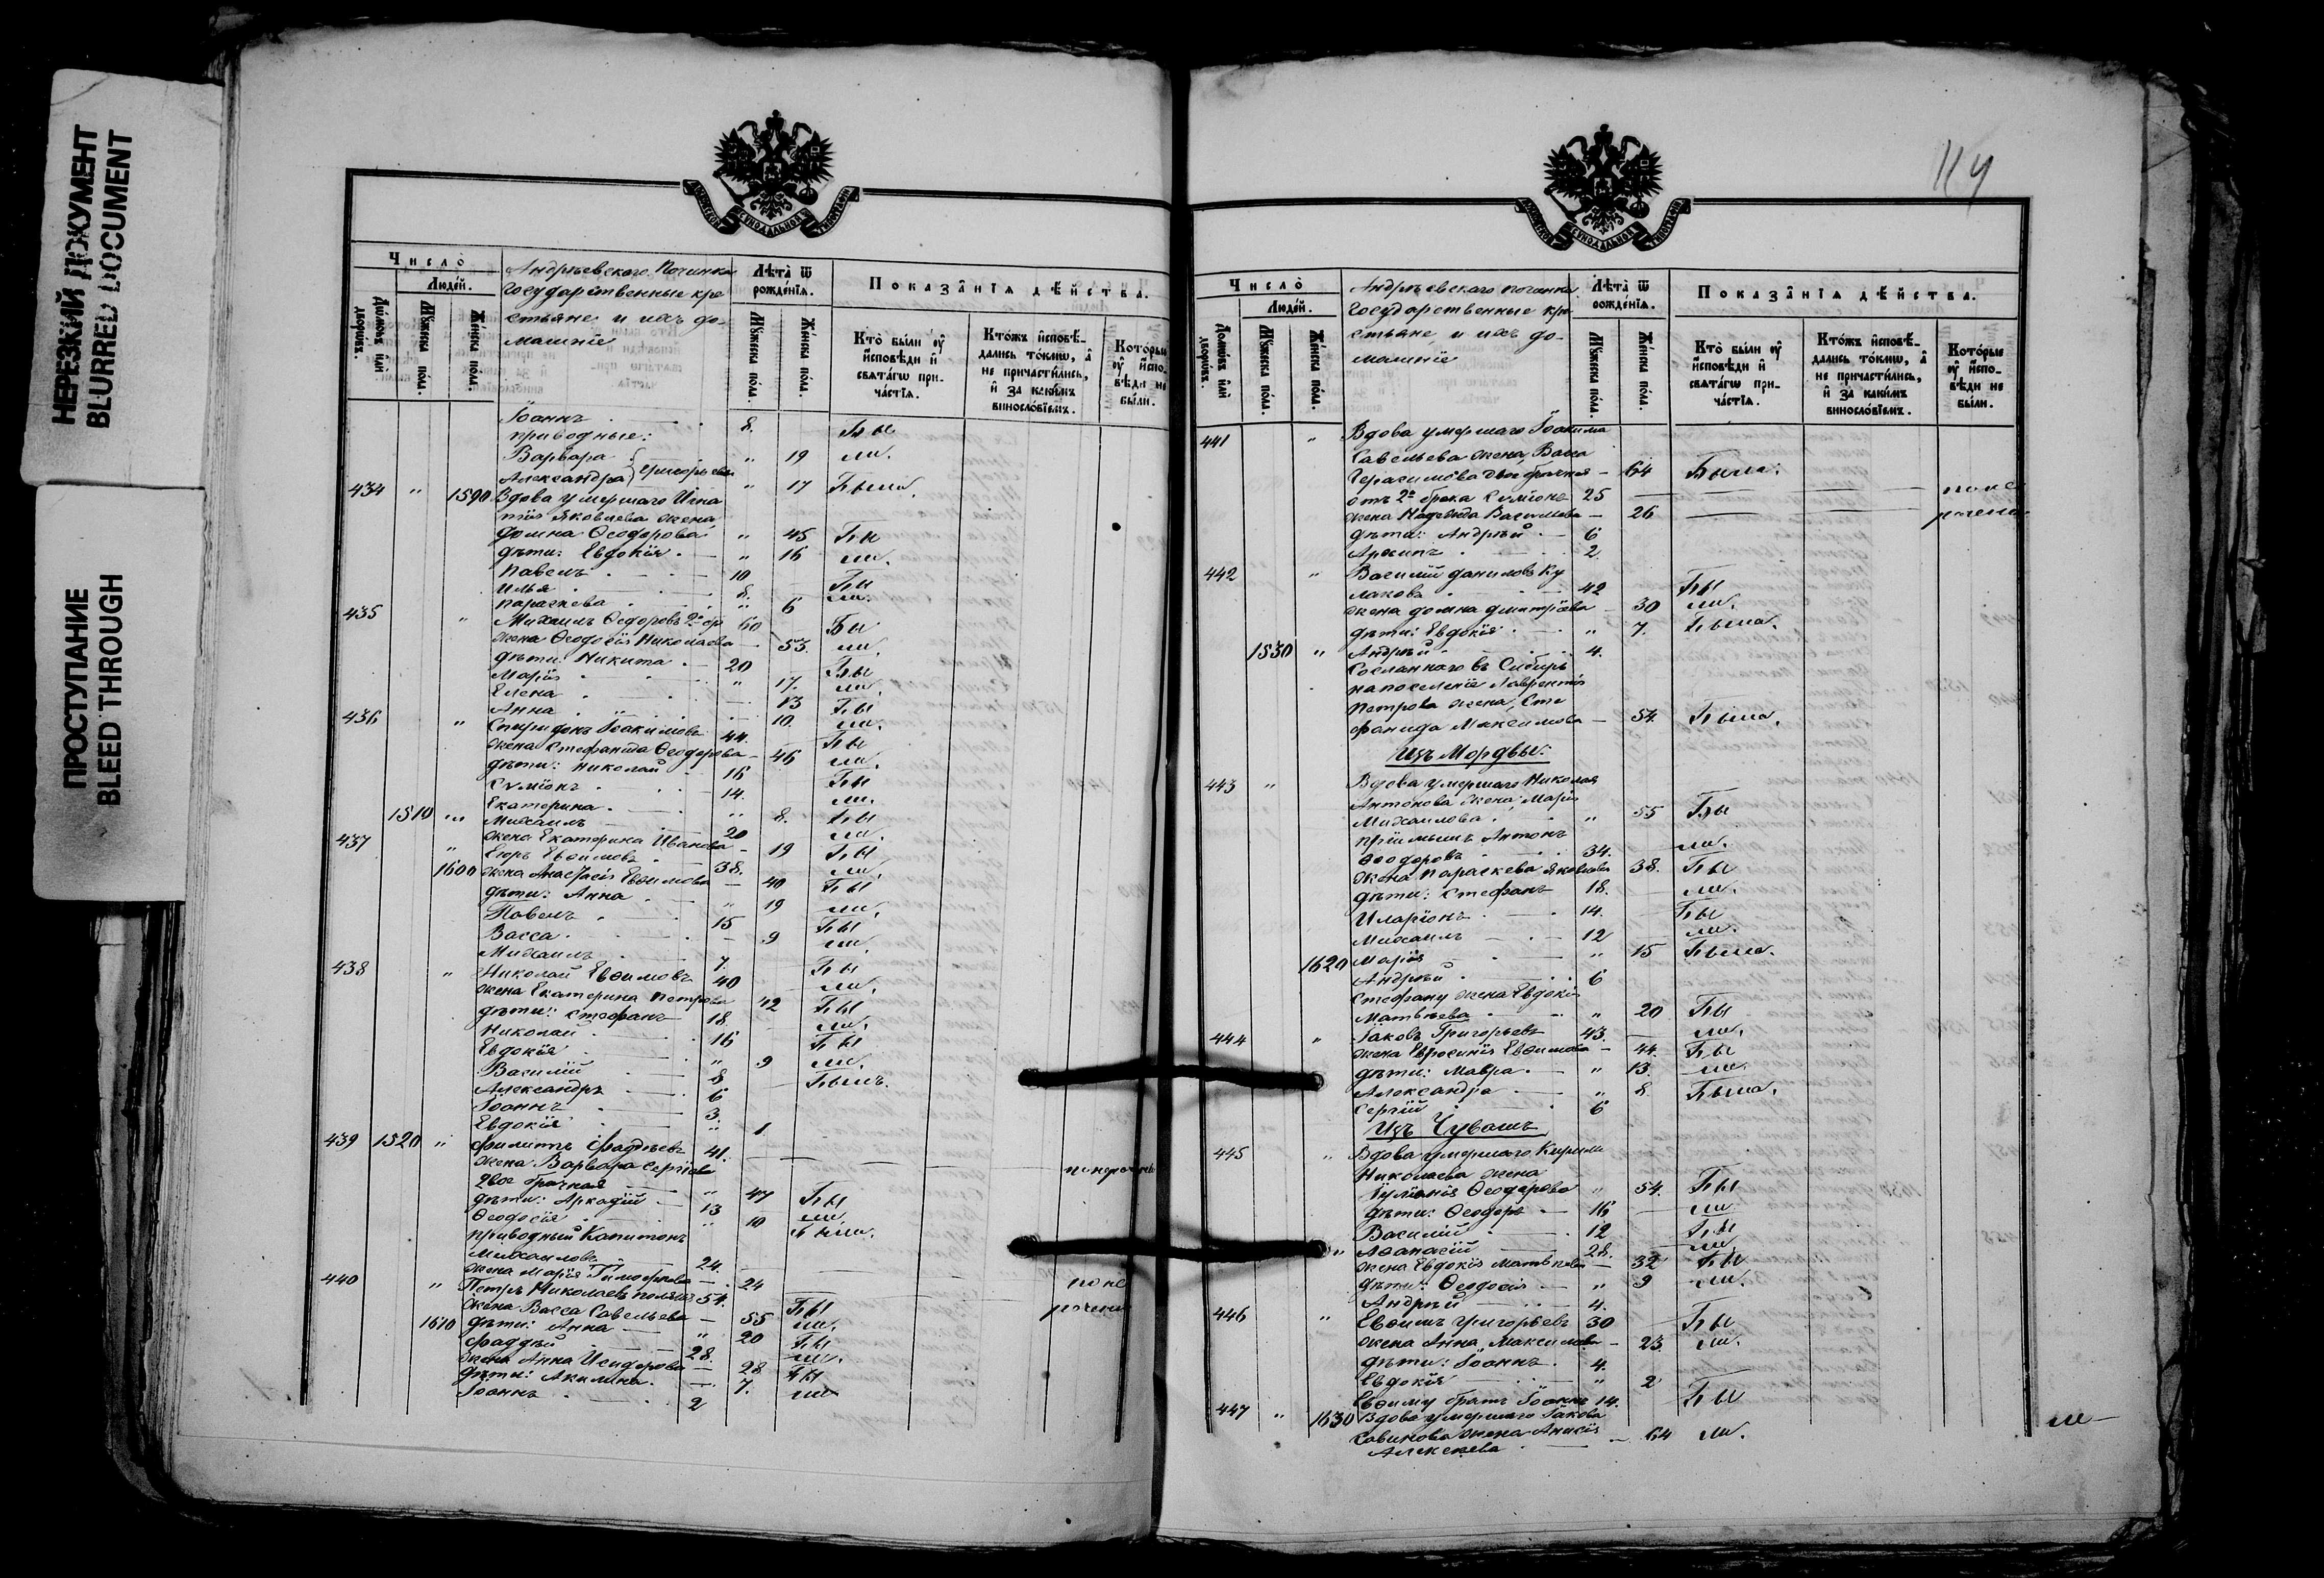 НЕРЕЗКИЙ ДОКУМЕНТ
BLURRED DOCUMENT
ПРОСТУПАНИЕ
BLEED THROUGH
СѴНОДАЛЬНОЙ
Число̀
Людє́й.
Домѡ́въ и҆лѝ дворѡ́въ.
Мꙋ́жєска по́ла.
Жє́нска по́ла.
Андреевскаго Починка
государственные кре
стьяне и ихъ до-
машніе
Лѣта̀ ѿ рождє́нїѧ.
Мꙋ́жєска по́ла.
Жє́нска по́ла.
Показа̑нїѧ дѣ́йства.
Кто̀ бы́ли ᲂу҆ и҆сповѣди и҆ свѧта́гѡ причастїѧ.
Кто́жъ и҆сповѣ́дались то́кмѡ, а҆ не причасти́лись, и҆ за каки́мъ винослѡвїємъ.
Кото́рые ᲂу҆ и҆сповѣди не бы́ли.
Іоаннъ 8. Бы
приводные:
Варвара " 19 ли.
Александра Григорьевы " 17 Была.
434 " 1590 Вдова умершаго Игна
тія Яковлева жена
Домна Ѳеодорова " 45 Бы
дѣти: Евдокія " 16 ли.
Павелъ 10 Бы
Илья 8. ли.
Параскева " 6
435 " Михаилъ Ѳедоровъ 2 бр 60 Бы
жена Ѳеодосія Николаева 53. ли.
дѣти: Никита 20 Бы
Марія " 17. ли.
Елена 13 Бы
Анна 10. ли.
436 " Спиридонъ Іоакимовъ 44. Бы
жена Стефанида Ѳеодорова 46 ли.
дѣти: Николай 16 Бы
Сѵмеонъ 14. ли.
Екатерина " 8. Бы
1510 Михаилъ 20 ли.
жена Екатерина Иванова 19 Бы
437 " Егоръ Евѳимовъ 38. ли.
1600 жена Анастасія Евѳимова 40 Бы
дѣти: Анна " 19 ли.
Павелъ 15 Бы
Васса 9 ли.
Михаилъ 7. Бы
438 " Николай Евѳимовъ 40 ли.
жена Екатерина Петрова 42 Бы
дѣти: Стефанъ 18. ли.
Николай 16 Бы
Евдокія " 9 ли.
Василій 8 Былъ.
Александръ 6
Іоаннъ 3.
Евдокія " 1
439 1520 " Филиппъ Фаддѣевъ 41.
жена Варвара Сергіева
2вое брачная " 47 Бы
дѣти: Аркадій 13 ли.
Ѳеодосія " 10 Была.
приводный Капитонъ
Михаиловъ 24.
жена Марія Тимоѳеева 24
440 " Петръ Николаевъ 54. Бы
жена Васса Савельева 55 ли.
1610 дѣти: Анна " 20 Бы
Фаддѣй 28. ли.
жена Анна Исидорова 28 Бы
дѣти: Акилина 7. ли
Іоаннъ 2
СѴНОДАЛЬНОЙ
Число̀
Людє́й.
Домѡ́въ и҆лѝ дворѡ́въ.
Мꙋ́жєска по́ла.
Жє́нска по́ла.
Андреевскаго починка
Государственные кре
стьяне, и ихъ до-
машніе
Лѣта̀ ѿ рождє́нїѧ.
Мꙋ́жєска по́ла.
Жє́нска по́ла.
Показа̑нїѧ дѣ́йства.
Кто̀ бы́ли ᲂу҆ и҆сповѣди и҆ свѧта́гѡ причастїѧ.
Кто́жъ и҆сповѣ́дались то́кмѡ, а҆ не причасти́лись, и҆ за каки́мъ винослѡвїємъ.
Кото́рые ᲂу҆ и҆сповѣди не бы́ли.
441 " Вдова умершаго Іоакима
Савельева жена, Васса
Герасимова двоебрачная 64 Была.
отъ 2о брака Сѵмеонъ 25
жена Надежда Васильева 26
дѣти: Андрей 6
Архипъ 2.
442 " Василій Даниловъ Ку
лаковъ 42 Бы
жена Домна Дмитріева 30 ли.
дѣти: Евдокія " 7. Была.
1530 " Андрей 4.
Сосланнаго въ Сибирь
на поселеніе Лаврентія
Петрова жена, Сте
фанида Максимова 54. Была.
Изъ Мордвы:
443 " Вдова умершаго Николая
Антонова жена, Марія
Михаилова " 55 Бы
пріймышъ Антонъ
Ѳеодоровъ 34. ли.
жена Параскева Яковлева 38. Бы
дѣти: Стефанъ 18. ли.
Иларіонъ 14. Бы
Михаилъ 12 ли.
1620 Марія " 15 Была.
Андрей 6
Стефану жена Евдокія
Матвѣева " 20 Бы
444 " Іаковъ Григорьевъ 43. ли.
жена Евфросинія Евѳимова 44. Бы
дѣти: Мавра " 13. ли.
Александра " 8. Была.
Сергій 6
Изъ Чувашъ
445 " Вдова умершаго Кирила
Николаева жена
Іуліанія Ѳеодорова " 54. Бы
дѣти: Ѳеодоръ 16 ли.
Василій 12 Бы
" Аѳанасій 28. ли
жена Евдокія Матвѣева 32 Бы
дѣти: Ѳеодосія " 9 ли.
Андрей 4.
446 " Евѳимъ Григорьевъ 30 Бы
жена Анна Максимова 23 ли.
дѣти: Іоаннъ 4.
Евдокія " 2
Евѳиму братъ Іоаннъ 14. Бы
447 " 1630 Вдова умершаго Іакова
Савинова жена Анисія
Алексеева 64 ли.